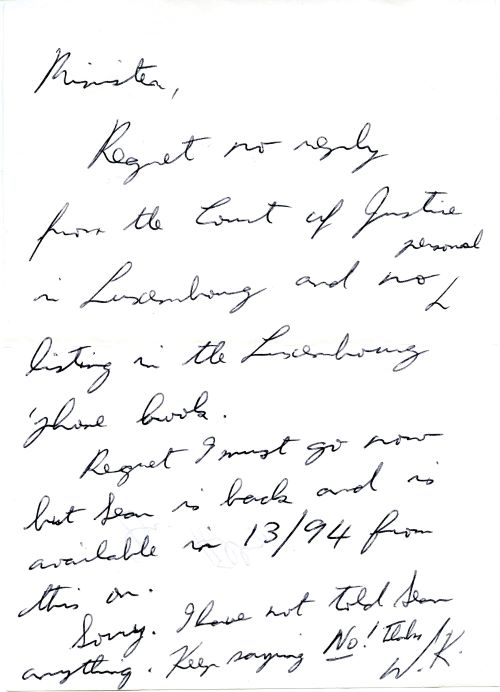 Minister,
Regret no reply
from the Court of Justice
in Luxembourg and no personal
listing in the Luxembourg
'phone book.
Regret I must go now
but Sean is back and is
available in 13/94 from
this on.
Sorry. I have not told Sean
anything. Keep saying No!
W.K.